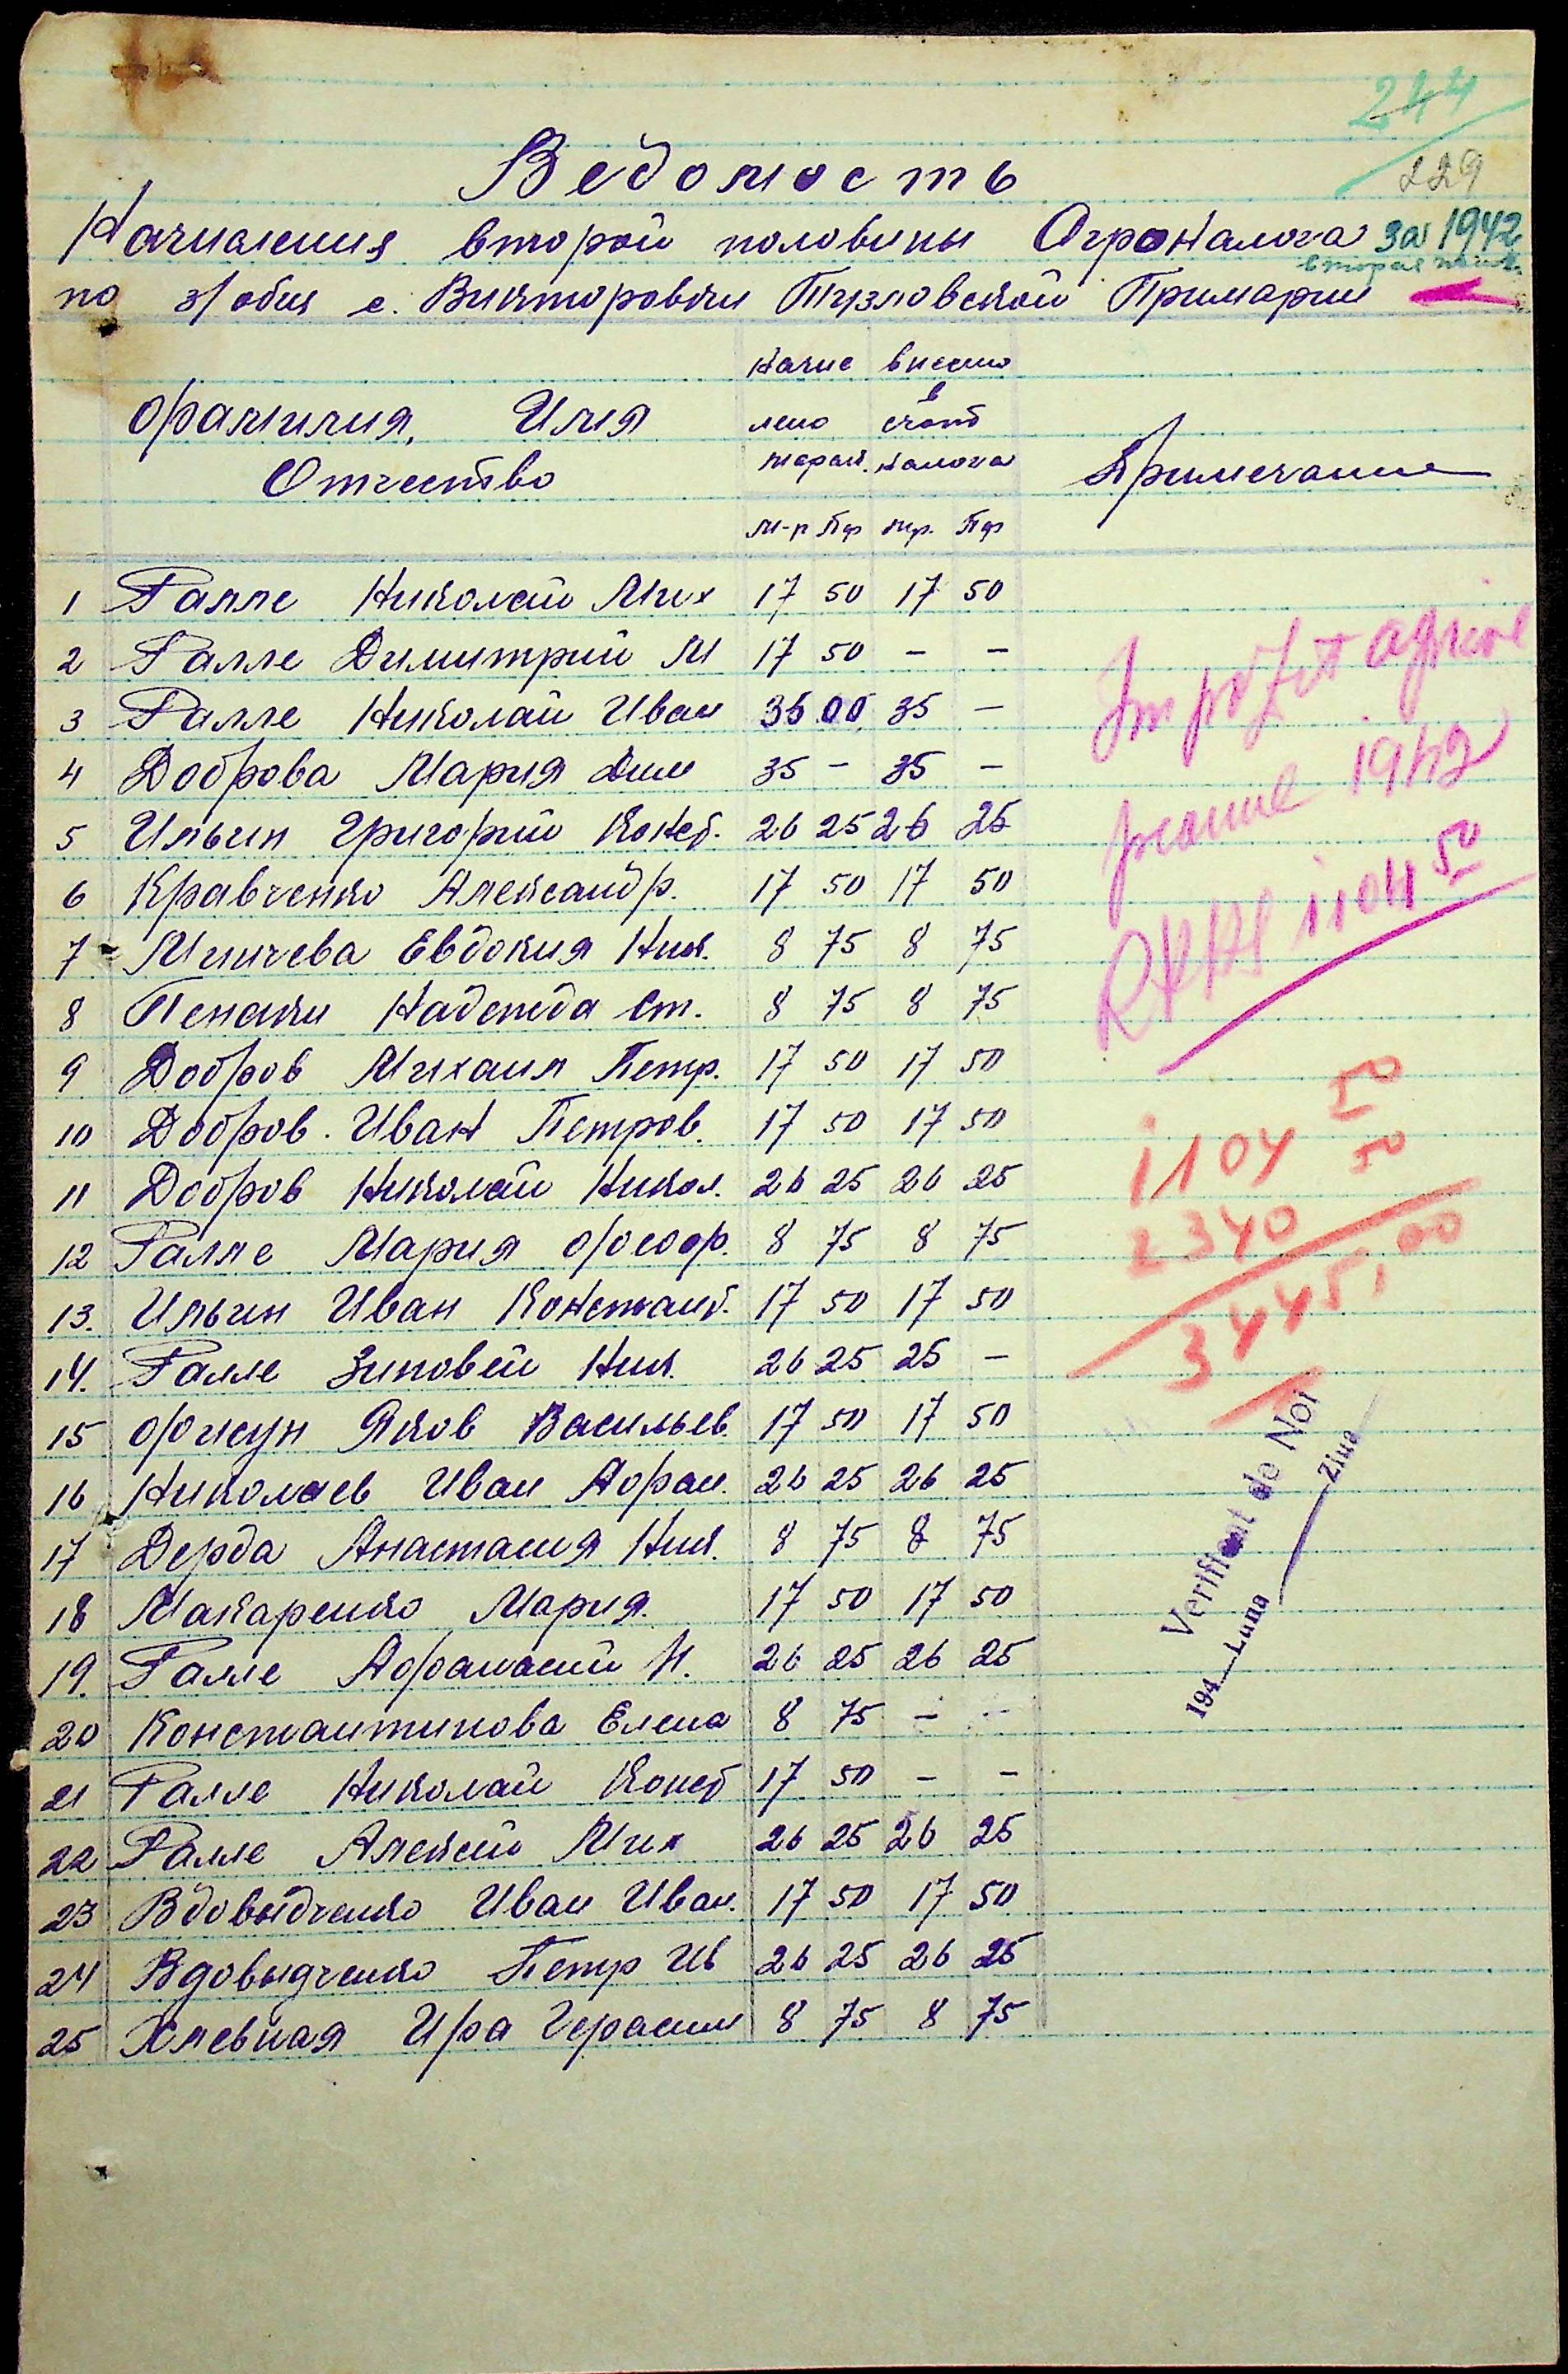 244
229
Ведомость
Начисления второй половины Агроналога за 1942
вторая полов.
по з/обия с. Викторовки Тузловской Примарии
Фамилия, Имя Отчество
Начис лено марак.
внесено в счет налога
Примечание
м-р Пф мр. Пф
1 Галле Николай Мих 17 50 17 50
2 Галле Димитрий М 17 50 - -
3 Галле Николай Иван 35 00 35 -
4 Доброва Мария Дим 35 - 35 -
5 Ильин Григорий Конст. 26 25 26 25
6 Кравченко Александр. 17 50 17 50
7 Минчева Евдокия Ник. 8 75 8 75
8 Пенаки Надежда Ст. 8 75 8 75
9 Добров Михаил Петр. 17 50 17 50
10 Добров Иван Петров. 17 50 17 50
11 Добров Николай Никол. 26 25 26 25
12 Галле Мария Феодр. 8 75 8 75
13. Ильин Иван Констант. 17 50 17 50
14. Галле Зиновей Ник. 26 25 25 -
15 Фисун Яков Васильев. 17 50 17 50
16 Николаев Иван Афан. 26 25 26 25
17 Дерда Анастасия Ник. 8 75 8 75
18 Макаренко Мария. 17 50 17 50
19. Галле Афанасий Н. 26 25 26 25
20 Константинова Елена 8 75 - -
21 Галле Николай Конст 17 50 - -
22 Галле Алексей Мих 26 25 26 25
23 Вдовыдченко Иван Иван. 17 50 17 50
24 Вдовыдченко Петр Ив 26 25 26 25
25 Хлевная Ира Герасим 8 75 8 75
Imposit agricol
1942
RKKS 1104 50
1104 50
2340 50
3445,00
Verificat de Noi
194 Luna Ziua